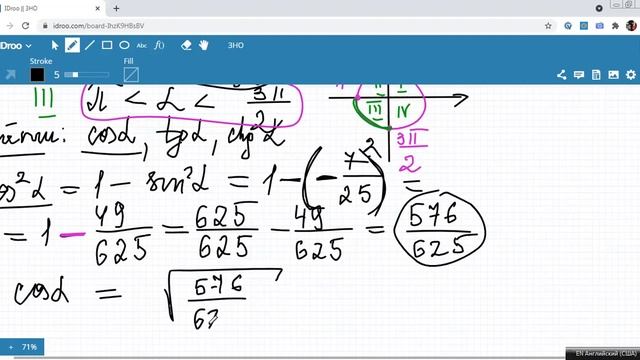 IDroo || ЗНО
idroo.com/board-IhzK9HBsBV
IDroo ЗНО
Stroke Fill
5
III π < α < 3π/2
I III IV
3π/2
cosα, tgα, ctgα
cos²α = 1 - sin²α = 1 - (-7/25)² =
= 1 - 49/625 = 625/625 - 49/625 = 576/625
cosα = √576/62
71%
EN Английский (США)